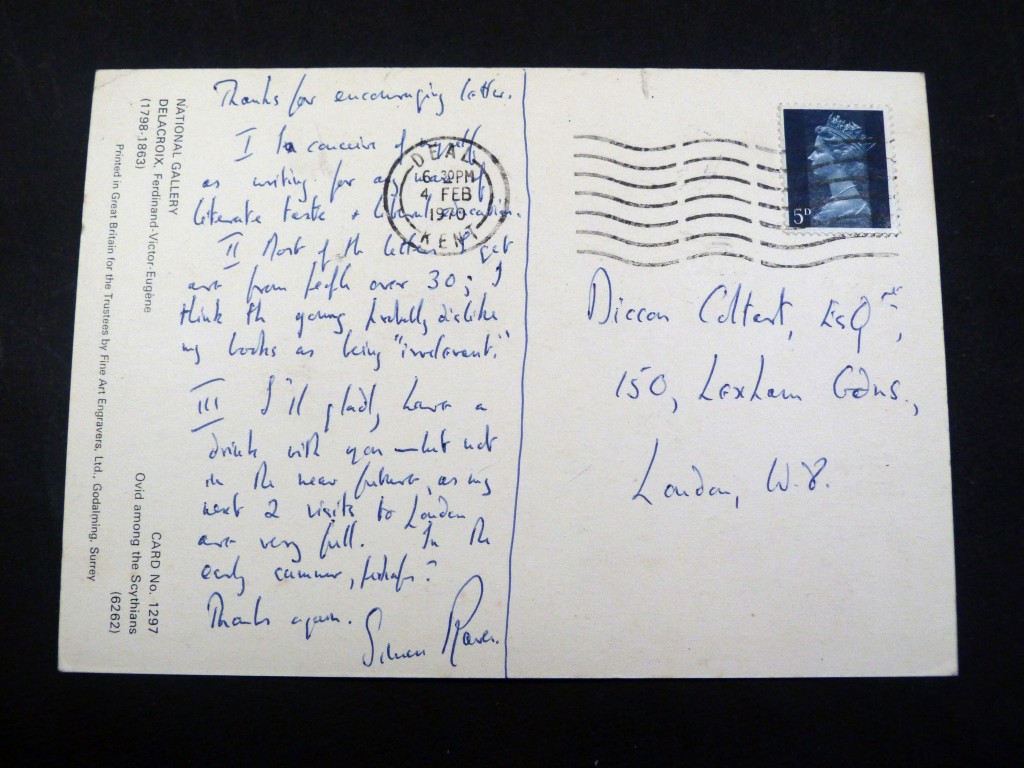 Thanks for encouraging letter.
I I conceive of myself
as writing for any man of
literate taste + liberal education.
II Most of the letters I get
are from people over 30; I
think the young probably dislike
my books as being "irrelevant."
III I'll gladly have a
drink with you – but not
in the near future, as my
next 2 visits to London
are very full. In the
early summer, perhaps?
Thanks again.
Simon Raven.
DEAL
6-30PM
4 FEB
1970
KENT
5D
Diccon
Esqre,
150, Lexham Gdns.,
London, W.8.
NATIONAL GALLERY
DELACROIX, Ferdinand-Victor-Eugène
(1798-1863)
Printed in Great Britain for the Trustees by Fine Art Engravers, Ltd., Godalming, Surrey
CARD No. 1297
Ovid among the Scythians
(6262)